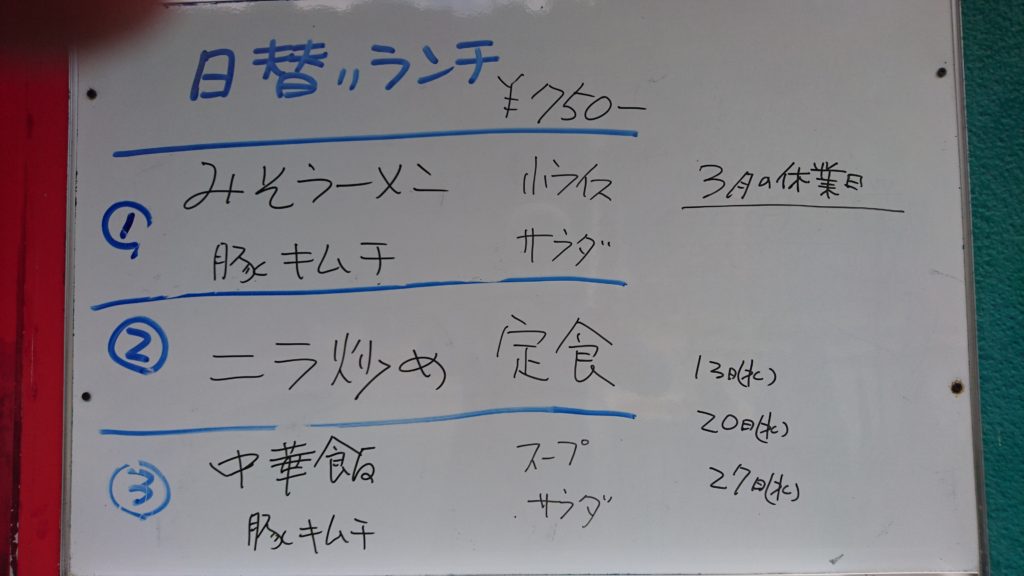 日替りランチ
¥750-
① みそラーメン 小ライス
豚キムチ サラダ
② ニラ炒め 定食
③ 中華飯 スープ
豚キムチ サラダ
3月の休業日
13日(水)
20日(水)
27日(水)